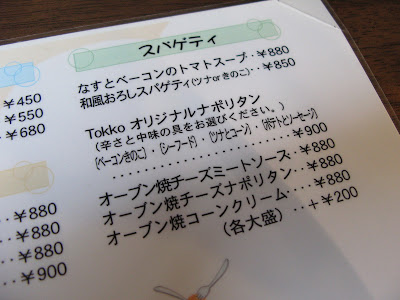 スパゲティ
なすとベーコンのトマトスープ‥¥880
和風おろしスパゲティ(ツナorきのこ)‥¥850
Tokko オリジナルナポリタン
(辛さと中味の具をお選びください。)
[ベーコンきのこ] [シーフード] [ツナとコーン] [ポテトとソーセージ]
‥‥‥‥‥‥‥‥‥¥900
オーブン焼チーズミートソース‥¥880
オーブン焼チーズナポリタン‥¥880
オーブン焼コーンクリーム‥¥880
(各大盛)‥+¥200
¥450
¥550
¥680
¥880
¥880
¥880
¥900